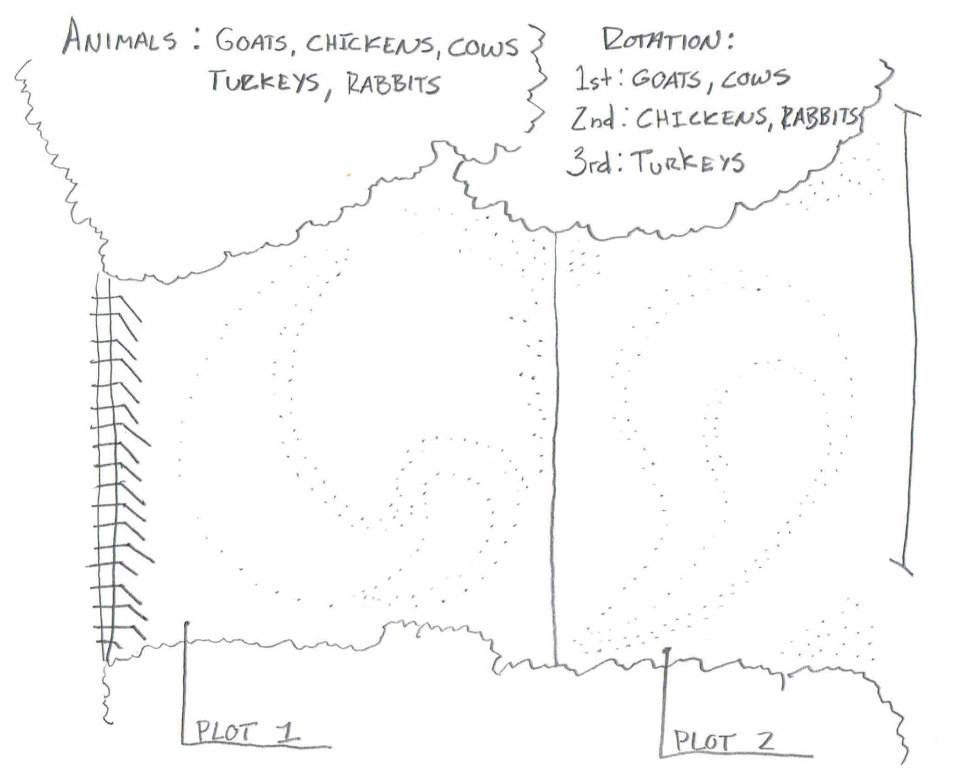 ANIMALS : GOATS, CHICKENS, COWS
TURKEYS, RABBITS
ROTATION:
1st: GOATS, COWS
2nd: CHICKENS, RABBITS
3rd: TURKEYS
PLOT 1
PLOT 2